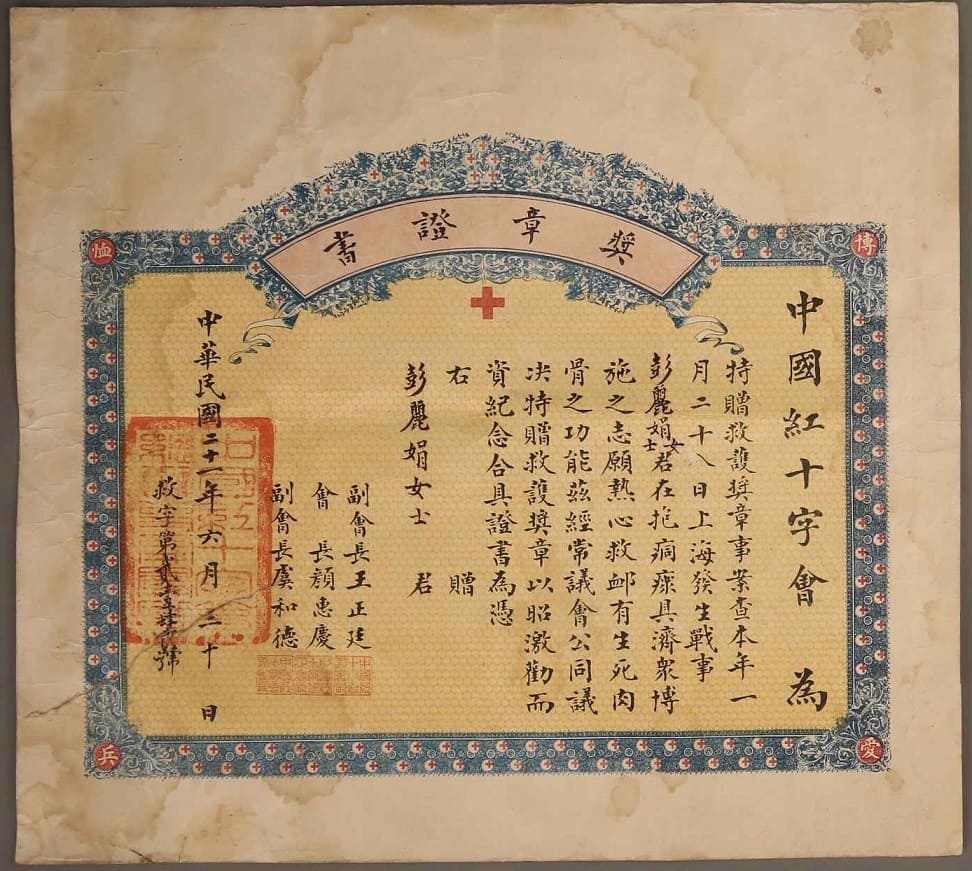 獎章證書
博
愛
恤
兵
中國紅十字會為
特贈救護獎章事案查本年一
月二十八日上海發生戰事
彭麗娟女士君在抱痌瘝具濟眾博
施之志願熱心救卹有生死肉
骨之功能茲經常議會公同議
决特贈救護獎章以昭激勸而
資紀念合具證書為憑
右贈
彭麗娟女士君
副會長王正廷
會長顏惠慶
副會長虞和德
中華民國二十一年六月三十日
救字第貳號